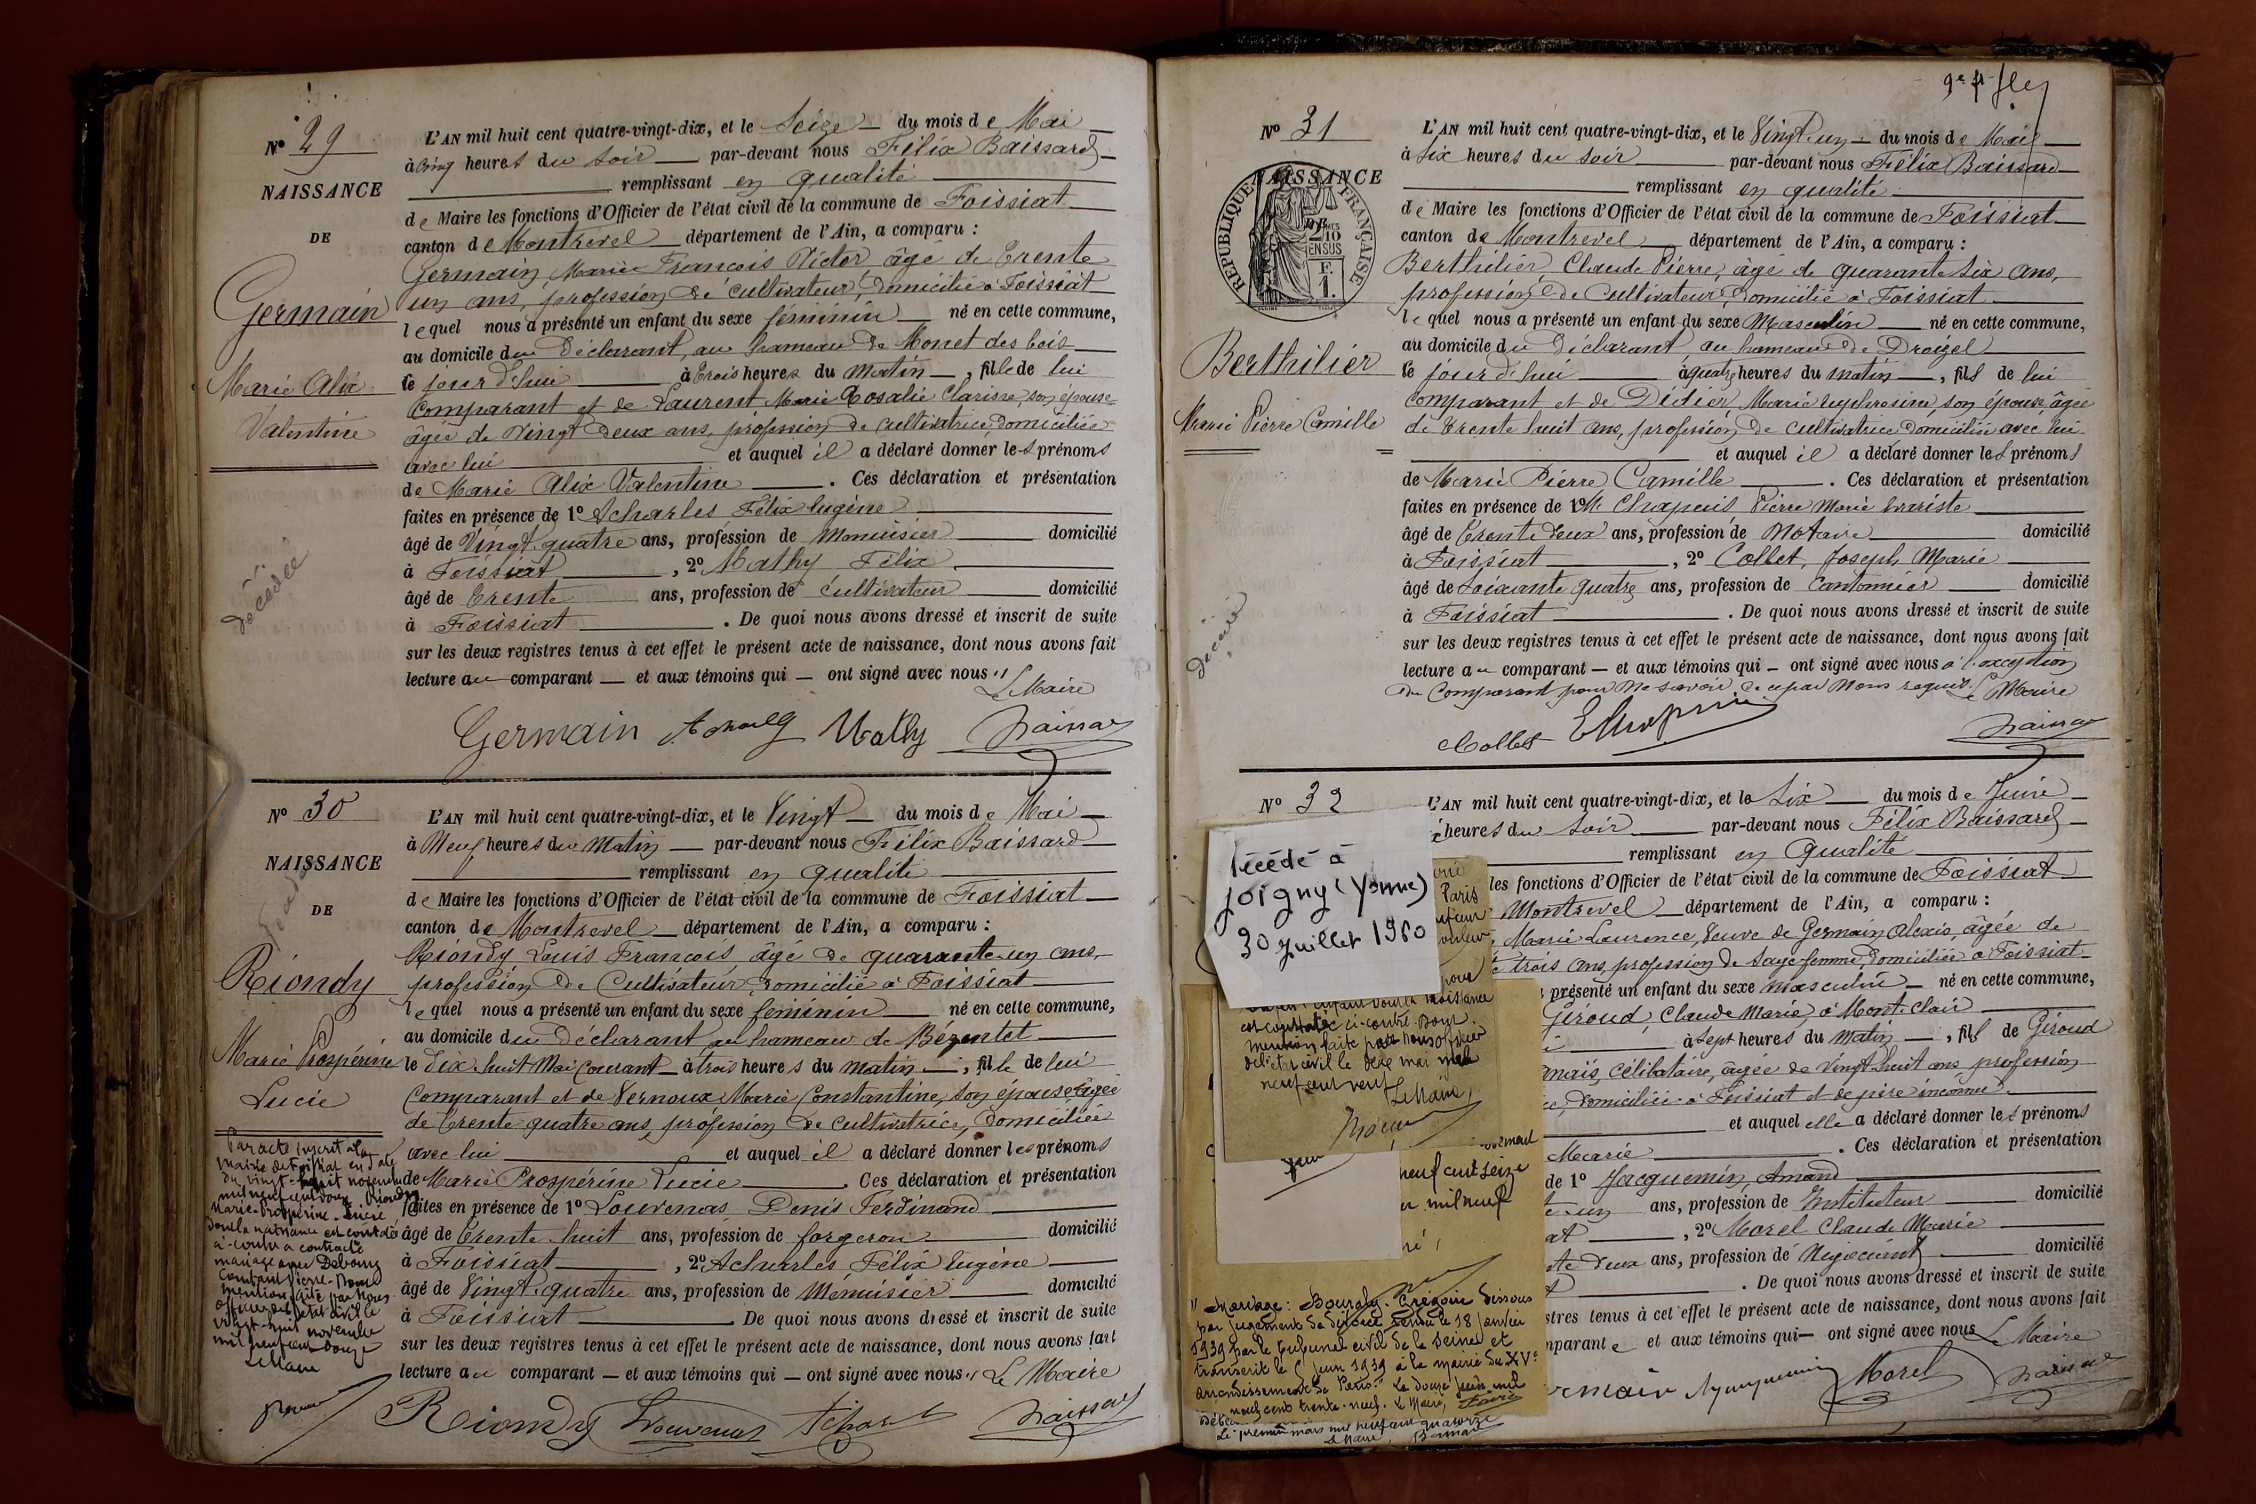 Nº 29
NAISSANCE
DE
Germain
Marie Alix
Valentine
décédée
L'AN mil huit cent quatre-vingt-dix, et le Seize du mois de Mai
à Cinq heures du Soir par-devant nous Félix Baissard
remplissant en qualité
de Maire les fonctions d'Officier de l'état civil de la commune de Foissiat
canton de Montrevel département de l'Ain, a comparu :
Germain, Marie François Victor âgé de trente
un ans, profession de cultivateur, domicilié à Foissiat
lequel nous a présenté un enfant du sexe féminin né en cette commune,
au domicile du Déclarant, au hameau de Monet des bois
le jour d'hui à trois heures du matin, fille de lui
Comparant et de Laurent Marie Rosalie Clarisse, son épouse
âgée de Vingt deux ans, profession de cultivatrice, domiciliée
avec lui et auquel il a déclaré donner les prénoms
de Marie Alix Valentine. Ces déclaration et présentation
faites en présence de 1º Acharles Félix Eugène
âgé de Vingt quatre ans, profession de Menuisier domicilié
à Foissiat, 2º Mathy Félix
âgé de trente ans, profession de cultivateur domicilié
à Foissiat. De quoi nous avons dressé et inscrit de suite
sur les deux registres tenus à cet effet le présent acte de naissance, dont nous avons fait
lecture au comparant et aux témoins qui ont signé avec nous
Le Maire
Germain Mathy Baissard
Nº 30
NAISSANCE
DE
Riondy
Marie Prospérine
Lucie
Par acte inscrit à la
mairie de Foissiat en date
du vingt-huit novembre
mil neuf cent douze Riondy
Marie-Prospérine-Lucie
dont la naissance est constatée
ci-contre a contracté
mariage avec Debourg
Constant Pierre. Dont
mention faite par Nous
officier de l'état civil le
vingt-huit novembre
mil neuf cent douze
Le Maire
L'AN mil huit cent quatre-vingt-dix, et le Vingt du mois de Mai
à Neuf heures du Matin par-devant nous Félix Baissard
remplissant en qualité
de Maire les fonctions d'Officier de l'état civil de la commune de Foissiat
canton de Montrevel département de l'Ain, a comparu :
Riondy Louis François âgé de quarante-un ans,
profession de Cultivateur, domicilié à Foissiat
lequel nous a présenté un enfant du sexe féminin né en cette commune,
au domicile du déclarant au hameau de Bézentet
le dix-huit Mai courant à trois heures du matin, fille de lui
Comparant et de Vernoux Marie Constantine, son épouse âgée
de trente quatre ans, profession de cultivatrice, domiciliée
avec lui et auquel il a déclaré donner les prénoms
de Marie Prospérine Lucie. Ces déclaration et présentation
faites en présence de 1º Louvenas Denis Ferdinand
âgé de trente huit ans, profession de forgeron domicilié
à Foissiat, 2º Acharles Félix Eugène
âgé de Vingt quatre ans, profession de Menuisier domicilié
à Foissiat. De quoi nous avons dressé et inscrit de suite
sur les deux registres tenus à cet effet le présent acte de naissance, dont nous avons fait
lecture au comparant et aux témoins qui ont signé avec nous. Le Maire
Riondy Louvenas Achar Baissard
Nº 31
NAISSANCE
DE
RÉPUBLIQUE FRANÇAISE
2/10
EN SUS
F.
1.
Berthilier
Marie Pierre Camille
décédé
L'AN mil huit cent quatre-vingt-dix, et le Vingt-un du mois de Mai
à Six heures du soir par-devant nous Félix Baissard
remplissant en qualité
de Maire les fonctions d'Officier de l'état civil de la commune de Foissiat
canton de Montrevel département de l'Ain, a comparu :
Berthilier, Claude Pierre, âgé de quarante six ans,
profession de Cultivateur domicilié à Foissiat
lequel nous a présenté un enfant du sexe Masculin né en cette commune,
au domicile du déclarant au hameau de Droizel
le jour d'hui à quatre heures du matin, fils de lui
Comparant et de Didier, Marie Euphrosine, son épouse, âgée
de trente huit ans, profession de cultivatrice domiciliée avec lui
et auquel il a déclaré donner les prénoms
de Marie Pierre Camille. Ces déclaration et présentation
faites en présence de 1º M. Chapuis Pierre Marie Evariste
âgé de trente deux ans, profession de Notaire domicilié
à Foissiat, 2º Collet, Joseph Marie
âgé de soixante quatre ans, profession de Cantonnier domicilié
à Foissiat. De quoi nous avons dressé et inscrit de suite
sur les deux registres tenus à cet effet le présent acte de naissance, dont nous avons fait
lecture au comparant et aux témoins qui ont signé avec nous à l'exception
du Comparant pour ne savoir de ce par Nous requis. Le Maire
Collet EChapuis Baissard
Nº 32
L'AN mil huit cent quatre-vingt-dix, et le Six du mois de Juin
heures du Soir par-devant nous Félix Baissard
remplissant en qualité
les fonctions d'Officier de l'état civil de la commune de Foissiat
Montrevel département de l'Ain, a comparu :
Marie Laurence, Veuve de Germain Alexis, âgée de
trois ans, profession de Sage-femme, domiciliée à Foissiat
présenté un enfant du sexe masculin né en cette commune,
Giroud, Claude Marie, à Mont-Clair
à Sept heures du matin, fils de Giroud
célibataire, âgée de Vingt huit ans profession
domiciliée à Foissiat et de père inconnu
et auquel elle a déclaré donner les prénoms
Marie. Ces déclaration et présentation
de 1º Jacquemin, Amand
ans, profession de Instituteur domicilié
2º Morel Claude Marie
deux ans, profession de Négociant domicilié
. De quoi nous avons dressé et inscrit de suite
stres tenus à cet effet le présent acte de naissance, dont nous avons fait
mparante et aux témoins qui ont signé avec nous Le Maire
Morel Baissard
Décédé à
Joigny (Yonne)
30 Juillet 1960
Paris
l'enfant dont la naissance
est constatée ci-contre. Dont
mention faite par Nous officier
de l'état civil le deux mai mil
neuf cent neuf
Le Maire,
neuf cent seize
mil neuf
"Mariage: Bourdy. Grégoire dissous
par jugement de divorce rendu le 18 janvier
1939 par le tribunal civil de la Seine et
transcrit le 5 juin 1939 à la mairie du XVe
arrondissement de Paris." Le douze juin mil
neuf cent trente-neuf. Le Maire,
Le premier mars mil neuf cent quatorze
Le Maire,